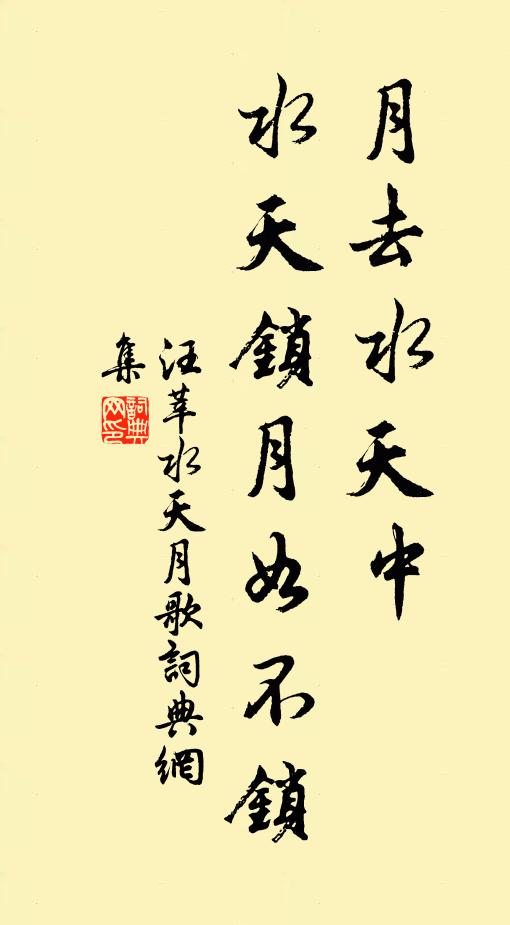 月去水天中
水天鎖月如不鎖
汪莘水天月歌詞典網
集
詞典
网印